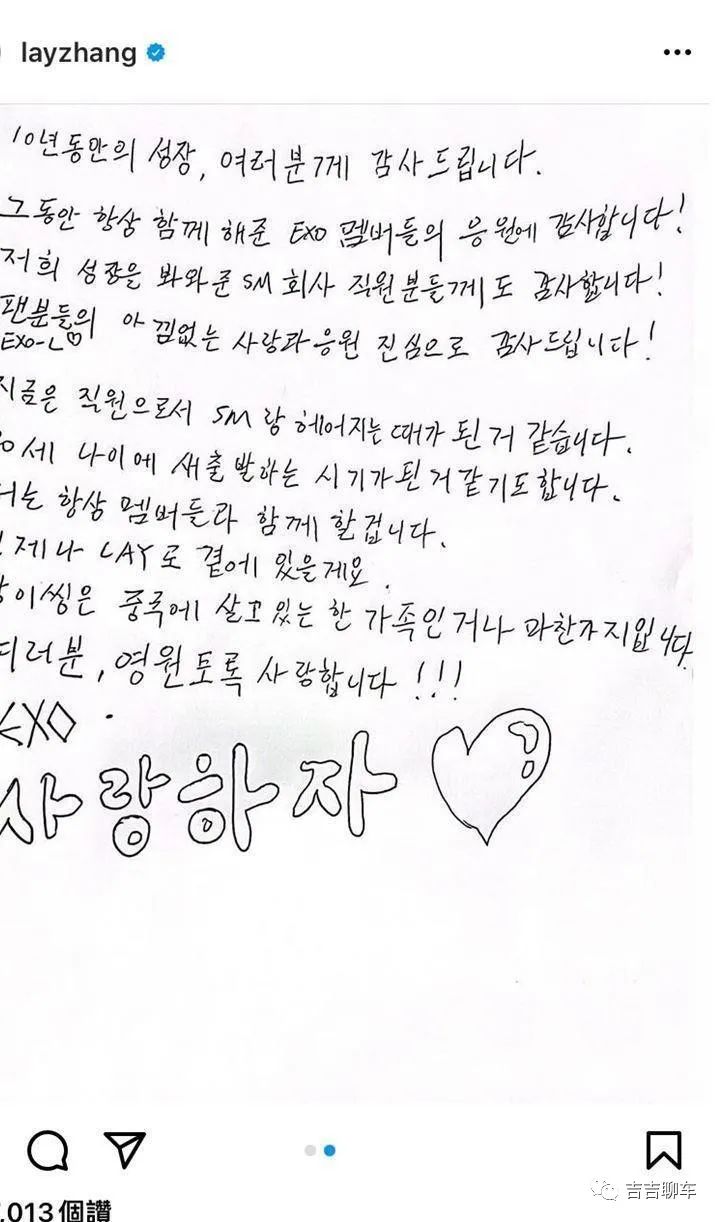 layzhang
10년동안의 성장, 여러분께 감사드립니다.
그동안 항상 함께 해준 EXO 멤버들의 응원에 감사합니다!
저희 성장을 봐와준 SM 회사 직원분들께도 감사합니다!
팬분들의 아낌없는 사랑과 응원 진심으로 감사드립니다!
EXO-L♡
지금은 직원으로서 SM랑 헤어지는 때가 된 거 같습니다.
0세 나이에 새출발하는 시기가 된 거 같기도 합니다.
저는 항상 멤버들과 함께 할겁니다.
제나 LAY로 곁에 있을게요.
이씽은 중국에 살고 있는 한 가족인거나 마찬가지입니다
여러분, 영원토록 사랑합니다!!!
EXO.
사랑하자
,013個讚
吉吉聊车